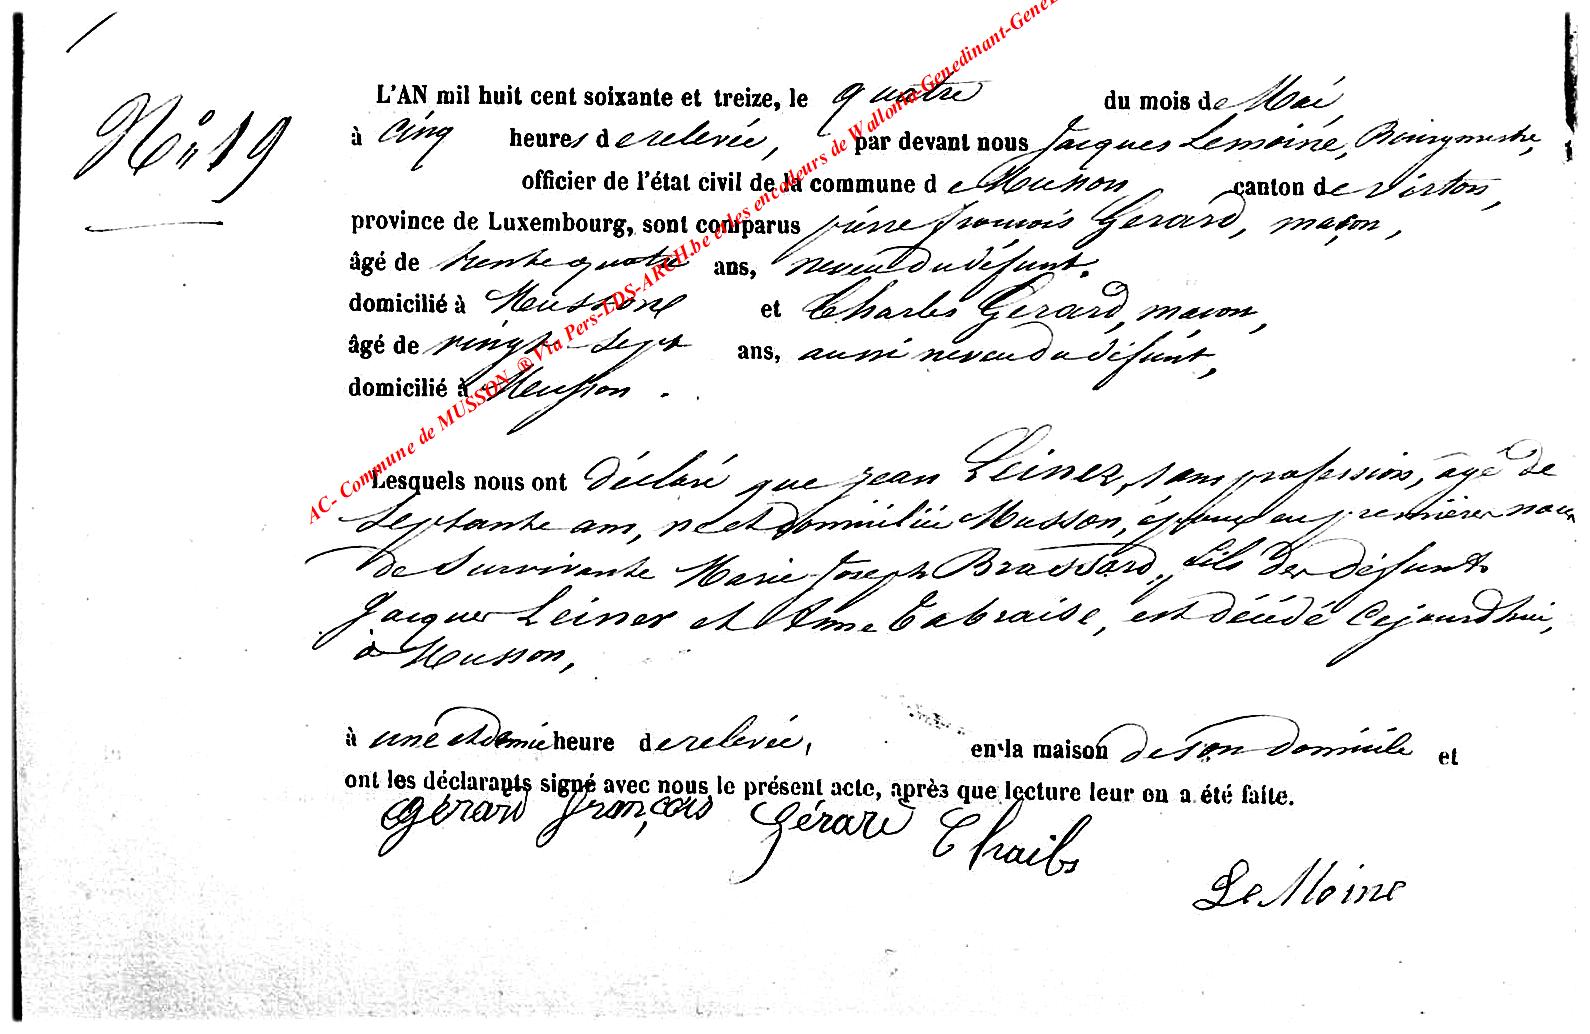 N° 19
L'AN mil huit cent soixante et treize, le quatre du mois de Mai
à cinq heures de relevée, par devant nous Jacques Lemoine, Bourgmestre,
officier de l'état civil de la commune de Musson canton de Virton,
province de Luxembourg, sont comparus pierre françois Gerard, maçon,
âgé de trente quatre ans, neveu du défunt.
domicilié à Musson et Charles Gerard, maçon,
âgé de vingt-sept ans, aussi neveu du défunt,
domicilié à Musson.
Lesquels nous ont déclaré que jean Leiner, sans profession, âgé de
septante ans, né et domicilié à Musson, époux en premières noces
de survivante Marie-Joseph Brassard, fils des défunts
Jacques Leiner et Anne Tabraise, est décédé cejourd'hui,
à Musson,
à une et demie heure de relevée, en la maison de son domicile et
ont les déclarants signé avec nous le présent acte, après que lecture leur en a été faite.
Gérard françois Gérard Charles
Le Moine
AC- Commune de MUSSON ® Via Pers-LDS-ARCH.be et les encodeurs de Wallonia-Genedinant-GeneB